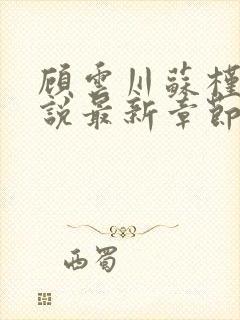 顾雲川蘇槿
說最新章節
西蜀